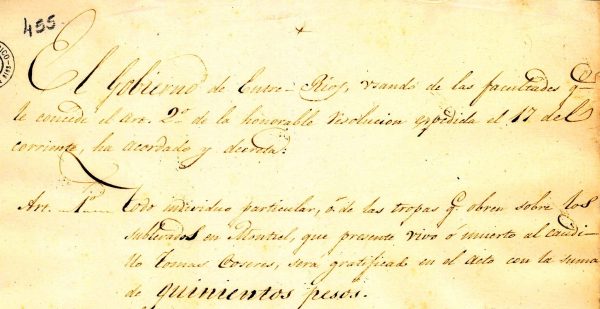 455.
El Gobierno de Entre-Rios, usando de las facultades q.
le concede el Art. 2º de la honorable resolucion expedida el 17 del
corriente, ha acordado y decreta:
Art. 1º Todo individuo particular, ó de las tropas q. obren sobre los
sublevados en Montiel, que presente vivo ó muerto al caudi-
llo Tomas Coseres, será gratificado en el acto con la suma
de quinientos pesos.